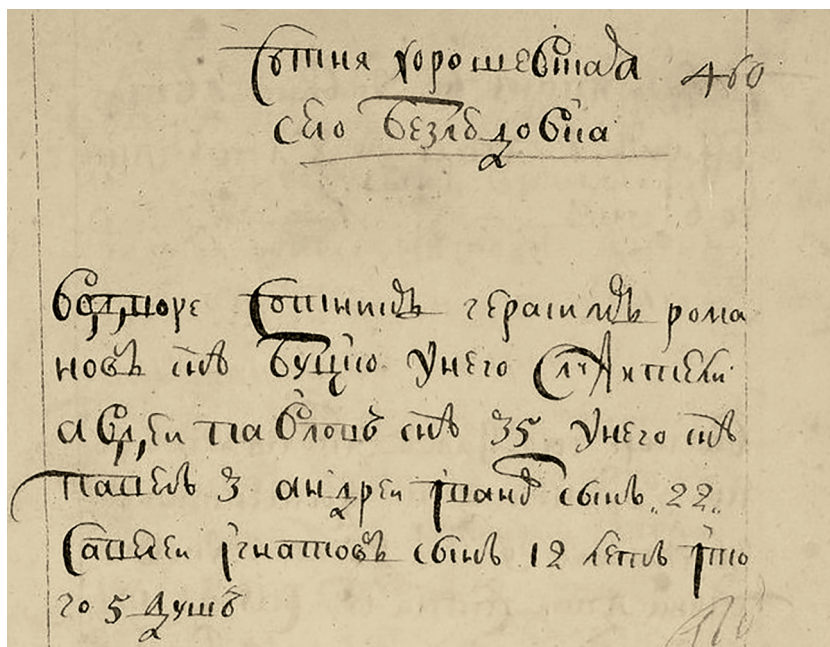 Сотня хорошевская 460
село Безлюдовка
Во дворе сотникъ герасимъ рома
новъ снъ Буцкю У него служители
авдеи павловъ снъ 35 У него снъ
павелъ 3 андреи ївановъ сынъ 22
Савелеи їгнатовъ сынъ 12 летъ їто
го 5 душъ